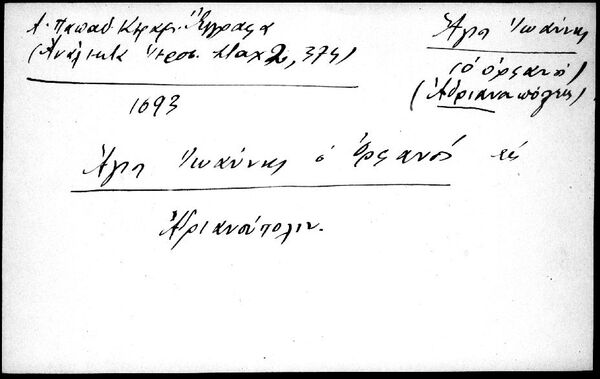 Α. Παπαδ. Κεραμ. Ἔγγραφα
(Ἀνάλεκτα Ἱεροσ. Σταχ 2, 375)
Ἅγιος Ἰωάννης
(ὁ ὀρφανός)
(Ἀδριανουπόλεως)
1693
Ἅγιος Ἰωάννης ὁ Ὀρφανός εἰς
Ἀδριανούπολιν.